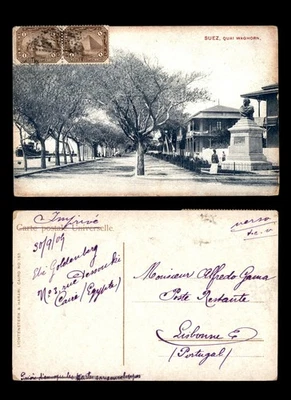 SUEZ, QUAI WAGHORN.
Imprimé
Carte postale Universelle.
30/9/09
Goldenberg
No 3, rue Dessouki
Caire (Egypte)
LICHTENSTERN & HARARI, CAIRO NO 120.
verso
s.t.v.
Monsieur Alfredo Gama
Poste Restante
Lisbonne
(Portugal)